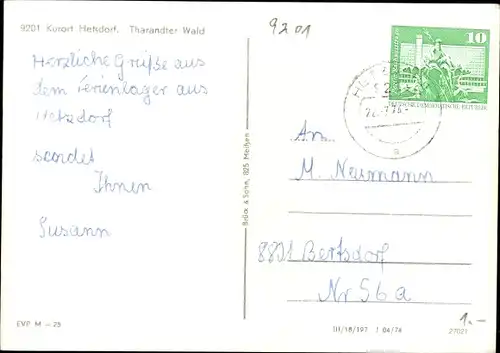 9201 Kurort Hetsdorf. Tharandter Wald
9201
Herzliche Grüße aus
dem Ferienlager aus
Hetzdorf
sendet
Ihnen
Susann
10
DEUTSCHE DEMOKRATISCHE REPUBLIK
An
M. Neumann
8801 Bertsdorf
Nr 56a
Brück & Sohn, 825 Meißen
EVP M -.25
III/18/197 J 04/76
27021
1.-